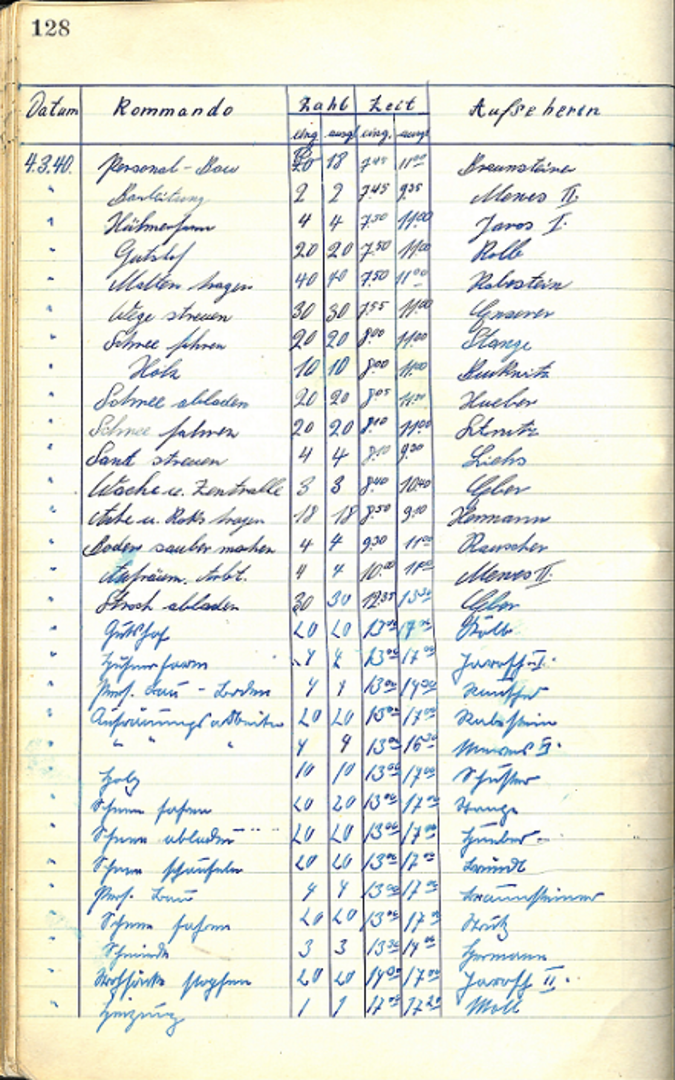 128
Datum Kommando Zahl Zeit Aufseherin
eing. ausg. eing. ausg.
4.3.40. Personal-Bau 20 18 7.45 11.00 Braunsteiner
" Bauleitung 2 2 7.45 9.35 Menes II.
" Hühnerfarm 4 4 7.50 11.00 Jaros I.
" Gutshof 20 20 7.50 11.00 Kolb
" Matten tragen 40 40 7.50 11.00 Rabestein
" Wege streuen 30 30 7.55 11.00
" Schnee fahren 20 20 8.00 11.00 Stange
" Holz 10 10 8.00 11.00
" Schnee abladen 20 20 8.05 11.00 Hueber
" Schnee fahren 20 20 8.10 11.00
" Sand streuen 4 4 8.10 9.30
" Wache u. Zentralle 3 3 8.40 10.40
" Asche u. Koks tragen 18 18 8.50 9.10 Hermann
" Boden sauber machen 4 4 9.30 11.00 Rauscher
" Aufräum. Arbt. 4 4 10.00 11.00 Menes II.
" Stroh abladen 30 30 12.35 13.30
" Gutshof 20 20 13.00 17.00 Kolb
" Hühnerfarm 4 4 13.00 17.00 Jaros I.
" Pers. Bau - Boden 4 4 13.00 14.30
" Aufräumungsarbeiten 20 20 13.00 17.00 Rabenstein
" " " " 4 4 13.00 16.30 II.
" Holz 10 10 13.00 17.00 Schuster
" Schnee fahren 20 20 13.00 17.00 Stange
" Schnee abladen 20 20 13.00 17.00 Hueber
" Schnee schaufeln 20 20 13.00 17.00
" Pers. Bau 4 4 13.00 17.00 Braunsteiner
" Schnee fahren 20 20 13.00 17.00
" Schmiede 3 3 13.30 14.00 Hermann
" Strohsäcke stopfen 20 20 14.00 17.00 II.
" Heizung 1 1 17.00 17.20